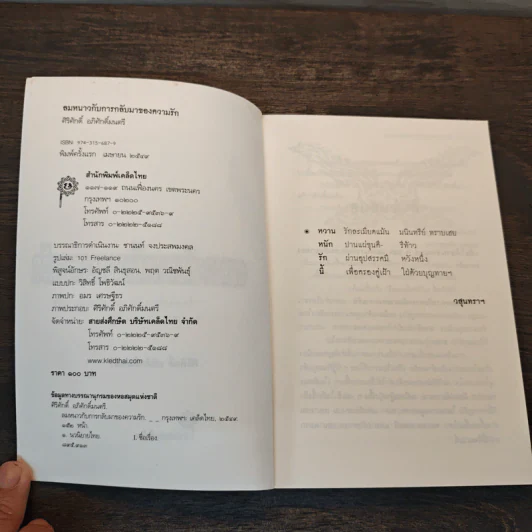 ลมหนาวกับการกลับมาของความรัก
ศิริศักดิ์ อภิศักดิ์มนตรี
ISBN 974-315-687-9
พิมพ์ครั้งแรก เมษายน ๒๕๔๙
สำนักพิมพ์เคล็ดไทย
๑๑๗-๑๑๙ ถนนเฟื่องนคร เขตพระนคร
กรุงเทพฯ ๑๐๒๐๐
โทรศัพท์ ๐-๒๒๒๕-๙๕๓๖-๙
โทรสาร ๐-๒๒๒๒-๕๑๘๘
บรรณาธิการดำเนินงาน ชานนท์ จงประสพมงคล
รูปเล่ม: 101 Freelance
พิสูจน์อักษร: อัญชลี สินธุสอน, พฤศ วณิชพันธุ์
แบบปก: วิสิทธิ์ โพธิวัฒน์
ภาพปก: อมร เศรษฐธีร
ภาพประกอบ: ศิริศักดิ์ อภิศักดิ์มนตรี
จัดจำหน่าย: สายส่งศึกษิต บริษัทเคล็ดไทย จำกัด
โทรศัพท์ ๐-๒๒๒๕-๙๕๓๖-๙
โทรสาร ๐-๒๒๒๒-๕๑๘๘
www.kledthai.com
ราคา ๑๐๐ บาท
ข้อมูลทางบรรณานุกรมของหอสมุดแห่งชาติ
ศิริศักดิ์ อภิศักดิ์มนตรี.
ลมหนาวกับการกลับมาของความรัก. _ _ กรุงเทพฯ: เคล็ดไทย, ๒๕๔๙.
๑๕๒ หน้า.
๑. นวนิยายไทย. I. ชื่อเรื่อง.
๘๙๕.๙๑๓
หวาน รักละเมียดแม้น
หนัก
รัก ผ่านอุปสรรคมี หวังหนึ่ง
นี้ เพื่อครองคู่เฝ้า
วสุนทราฯ